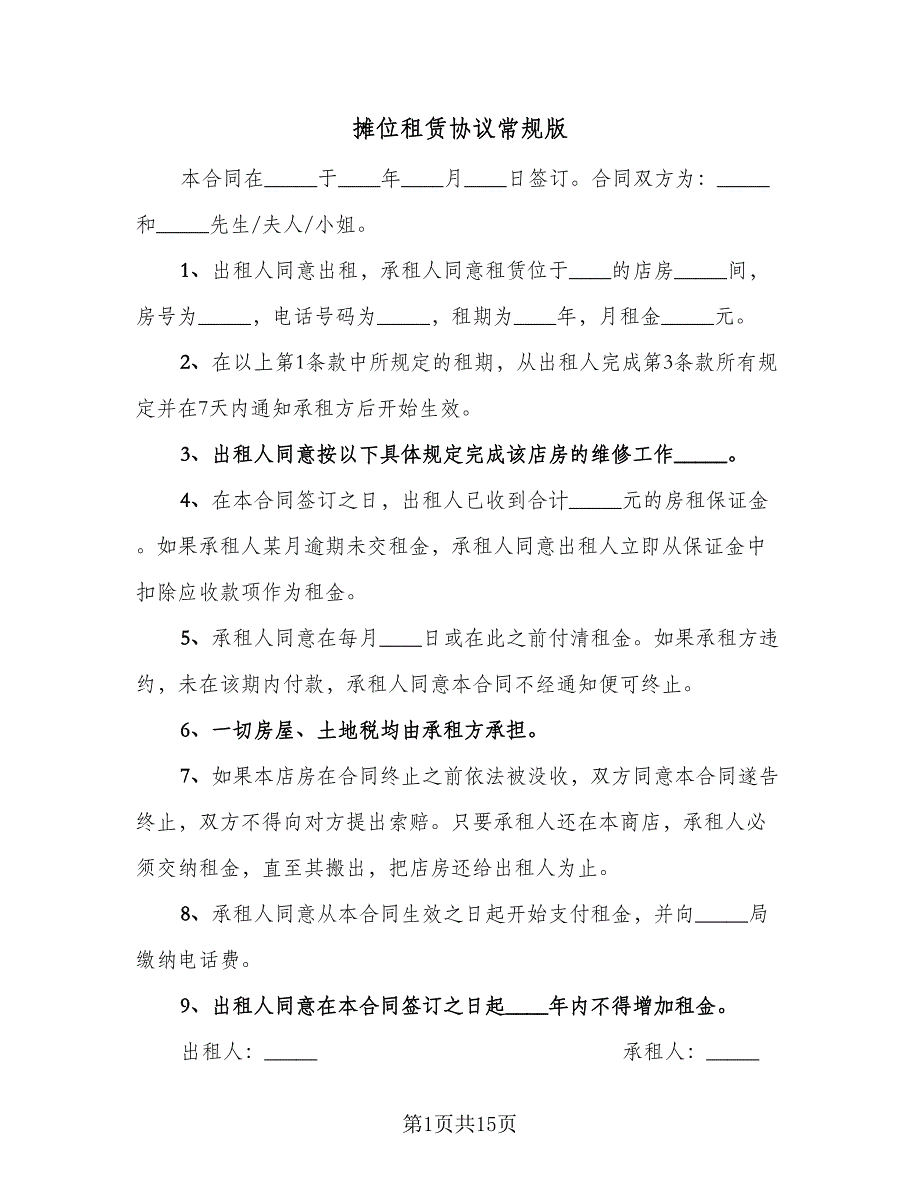 摊位租赁协议常规版
本合同在_____于____年____月____日签订。合同双方为：_____
和_____先生/夫人/小姐。
1、出租人同意出租，承租人同意租赁位于____的店房_____间，
房号为_____，电话号码为_____，租期为____年，月租金_____元。
2、在以上第1条款中所规定的租期，从出租人完成第3条款所有规
定并在7天内通知承租方后开始生效。
3、出租人同意按以下具体规定完成该店房的维修工作_____。
4、在本合同签订之日，出租人已收到合计_____元的房租保证金
。如果承租人某月逾期未交租金，承租人同意出租人立即从保证金中
扣除应收款项作为租金。
5、承租人同意在每月____日或在此之前付清租金。如果承租方违
约，未在该期内付款，承租人同意本合同不经通知便可终止。
6、一切房屋、土地税均由承租方承担。
7、如果本店房在合同终止之前依法被没收，双方同意本合同遂告
终止，双方不得向对方提出索赔。只要承租人还在本商店，承租人必
须交纳租金，直至其搬出，把店房还给出租人为止。
8、承租人同意从本合同生效之日起开始支付租金，并向_____局
缴纳电话费。
9、出租人同意在本合同签订之日起____年内不得增加租金。
出租人：_____ 承租人：_____
第1页共15页